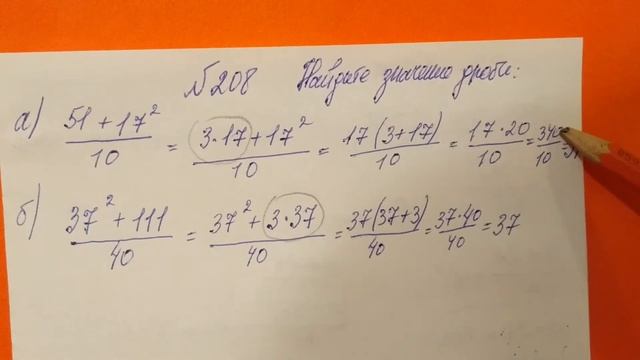 №208 Найдите значение дроби:
а) (51 + 17²)/10 = (3·17 + 17²)/10 = 17(3+17)/10 = 17·20/10 = 340/10 =
б) (37² + 111)/40 = (37² + 3·37)/40 = 37(37+3)/40 = 37·40/40 = 37